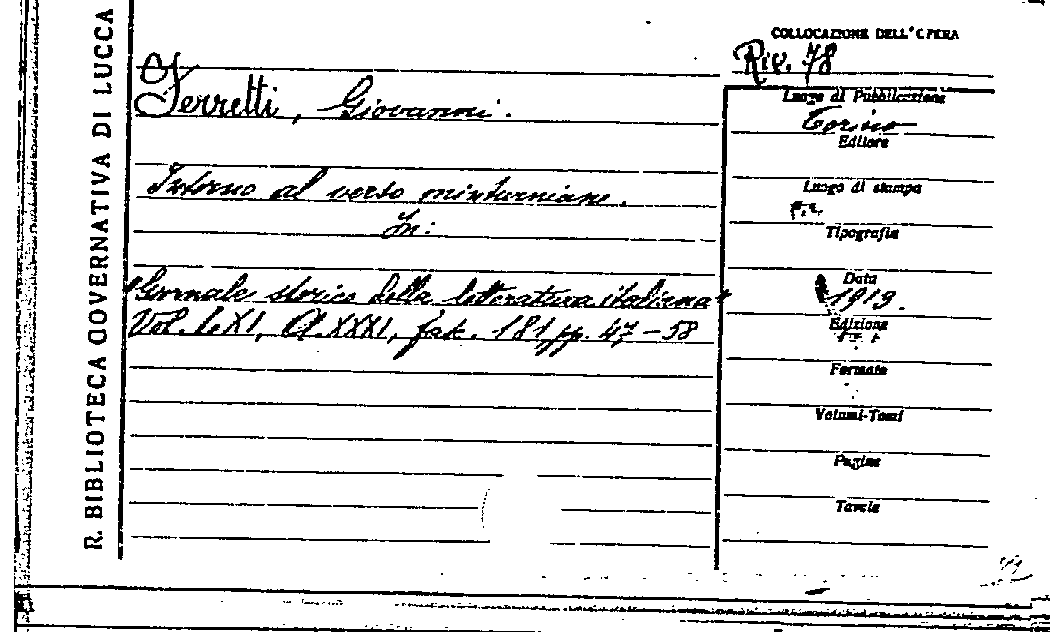 R. BIBLIOTECA GOVERNATIVA DI LUCCA
COLLOCAZIONE DELL'OPERA
Riv. 78
Ferretti, Giovanni.
Luogo di Pubblicazione
Torino
Editore
Intorno al verso minturniano.
In:
Luogo di stampa
Tipografia
"Giornale storico della letteratura italiana"
Vol. LXI, A. XXXI, fasc. 181, pp. 47-58
Data
1913.
Edizione
Formato
Volumi-Tomi
Pagine
Tavole